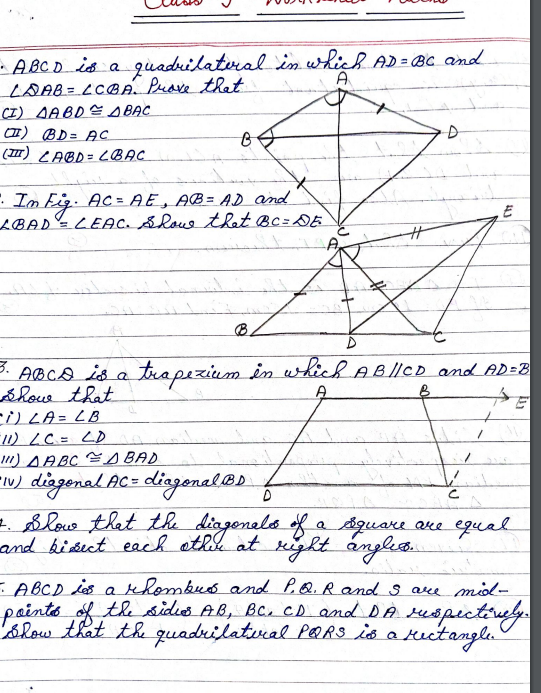 Class 9 Worksheet Maths
. ABCD is a quadrilateral in which AD = BC and
∠DAB = ∠CBA. Prove that
(I) △ABD ≅ △BAC
(II) BD = AC
(III) ∠ABD = ∠BAC
A
B
D
C
. In Fig. AC = AE, AB = AD and
∠BAD = ∠EAC. Show that BC = DE
E
A
B
D
C
3. ABCD is a trapezium in which AB||CD and AD = B
Show that
(i) ∠A = ∠B
(II) ∠C = ∠D
(III) △ABC ≅ △BAD
(IV) diagonal AC = diagonal BD
A
B
E
D
C
. Show that the diagonals of a square are equal
and bisect each other at right angles.
. ABCD is a rhombus and P, Q, R and S are mid-
points of the sides AB, BC, CD and DA respectively.
Show that the quadrilateral PQRS is a rectangle.